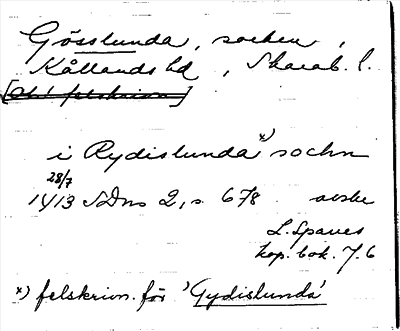 Gösslunda, socken,
Kållands hd, Skarab. l.
[Obs! felskrivn]
i Rydislunda x) sochn
28/7
1413 SDns 2, s. 678 avskr
L. Sparres
kop. bok. f. 6
x) felskrivn. för 'Gydislunda'